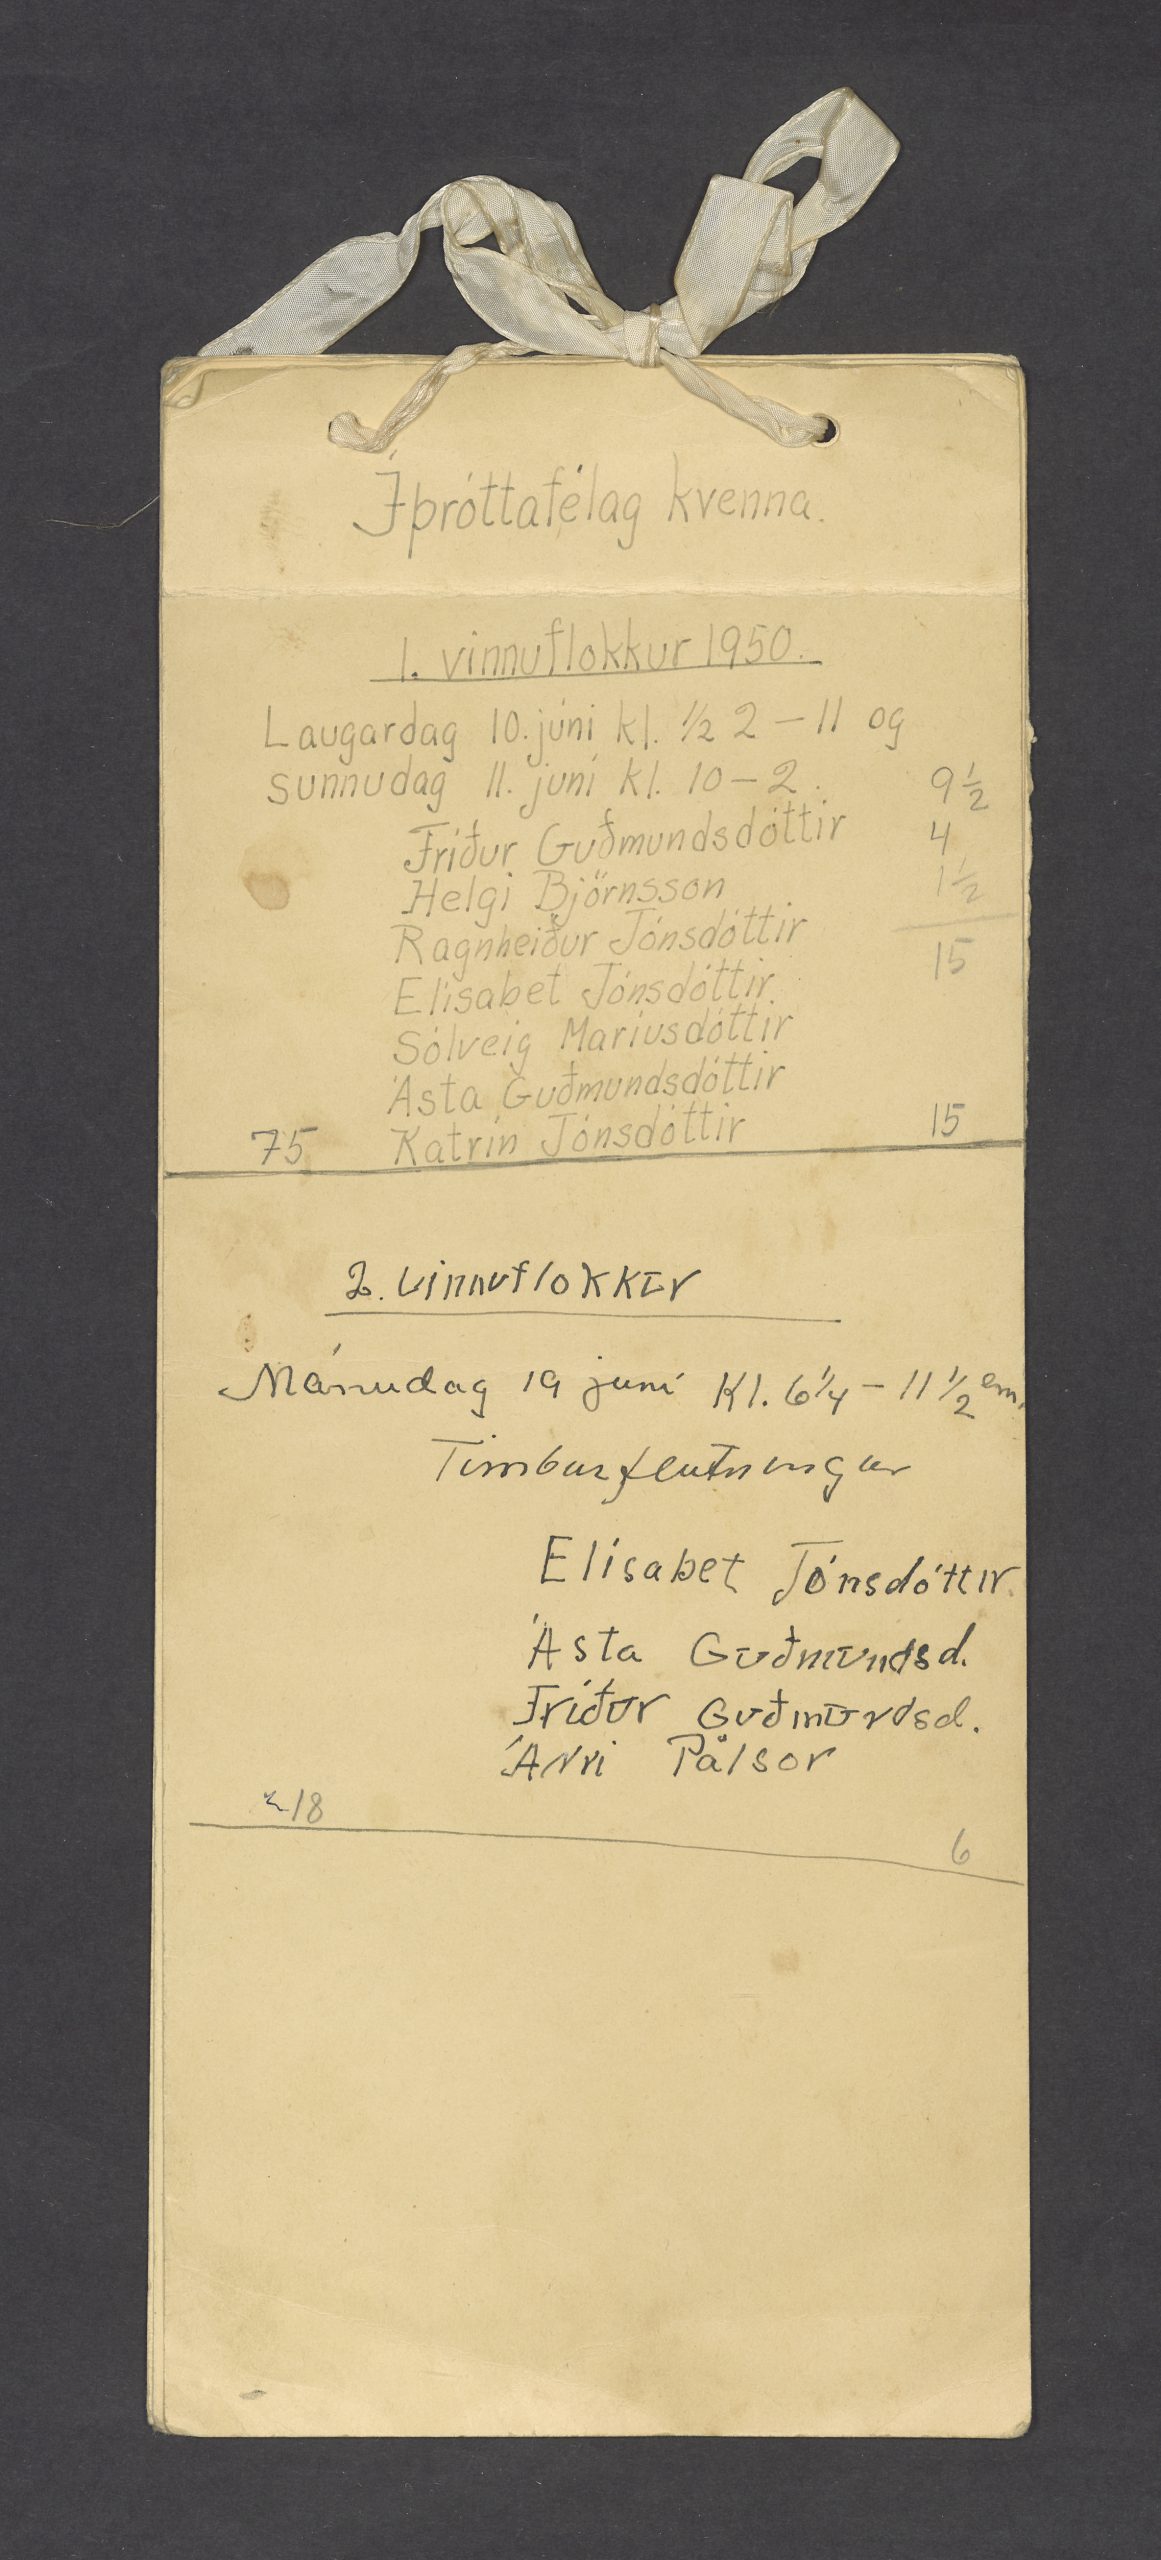 Íþróttafélag kvenna.
1. vinnuflokkur 1950.
Laugardag 10. júni kl. ½ 2 – 11 og
sunnudag 11. juni kl. 10 – 2.
9½
Fríður Guðmundsdóttir
4
Helgi Björnsson
1½
Ragnheiður Jónsdóttir
15
Elísabet Jónsdóttir
Sólveig Mariusdóttir
Ásta Guðmundsdóttir
75 Katrín Jónsdóttir 15
2. vinnuflokkur
Mánudag 19 juni Kl. 6¼ – 11½ em.
Timburflutningar
Elísabet Jónsdóttir
Ásta Guðmundsd.
Fríður Guðmundsd.
Árni Pálsson
18
6